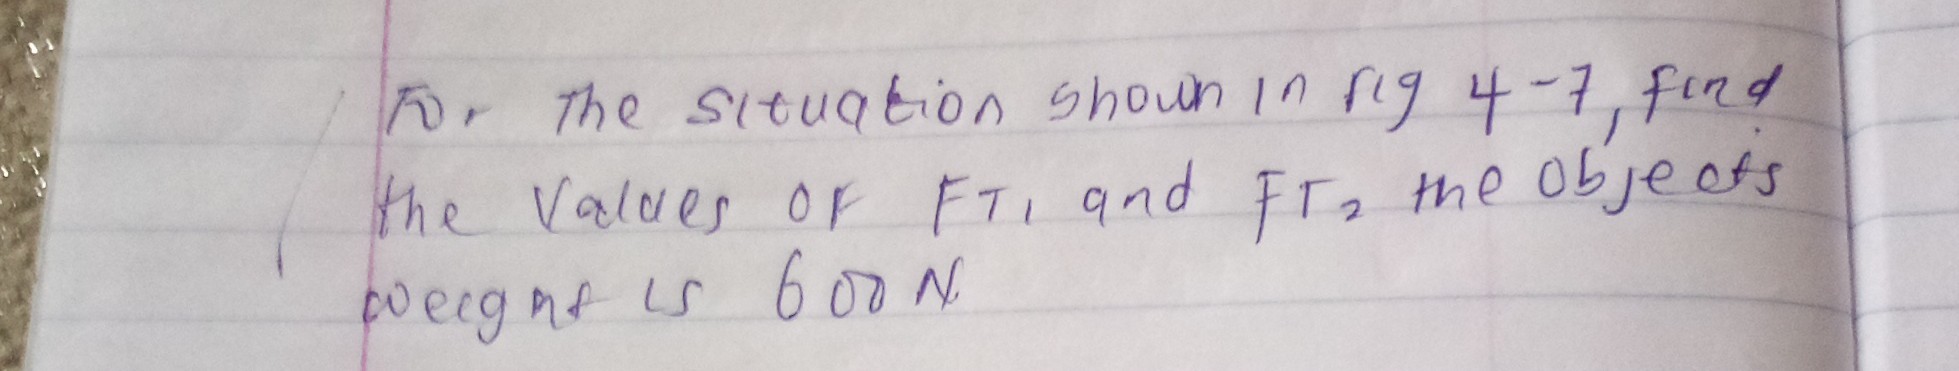 For The situation shown in fig 4-7, find
the Values OF FT1 and FT2 the objects
weight is 600 N